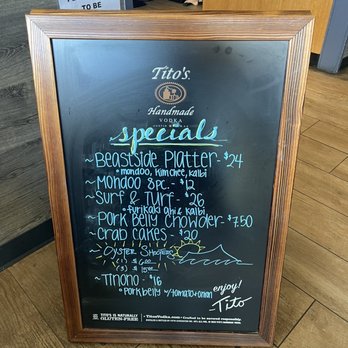 TO BE
Tito's
Handmade
VODKA
specials
~Beastside Platter- $24
•mandoo, Kim Chee, Kalbi
~Mandoo 8pc.- $12
~Surf & Turf- $26
•furikaki ahi & Kalbi
~Pork Belly Chowder- $7.50
~Crab Cakes- $20
~Oyster Shooters
(1) $6.00
(3)
~Tinono- $16
•pork belly w/tomato+onion
enjoy!
Tito
TITO'S IS NATURALLY
GLUTEN-FREE
TitosVodka.com • Crafted to be savored responsibly.